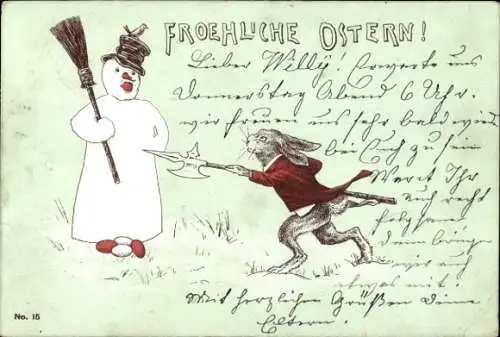 FROEHLICHE OSTERN!
Lieber Willy! Erwarte uns
Donnerstag Abend 6 Uhr.
wir freuen uns sehr bald wied.
bei Euch zu sein
Weret Ihr
auch recht
folgsam
dann bringen
wir auch
etwas mit!
Mit herzlichen Grüßen Deine
Eltern.
No. 15